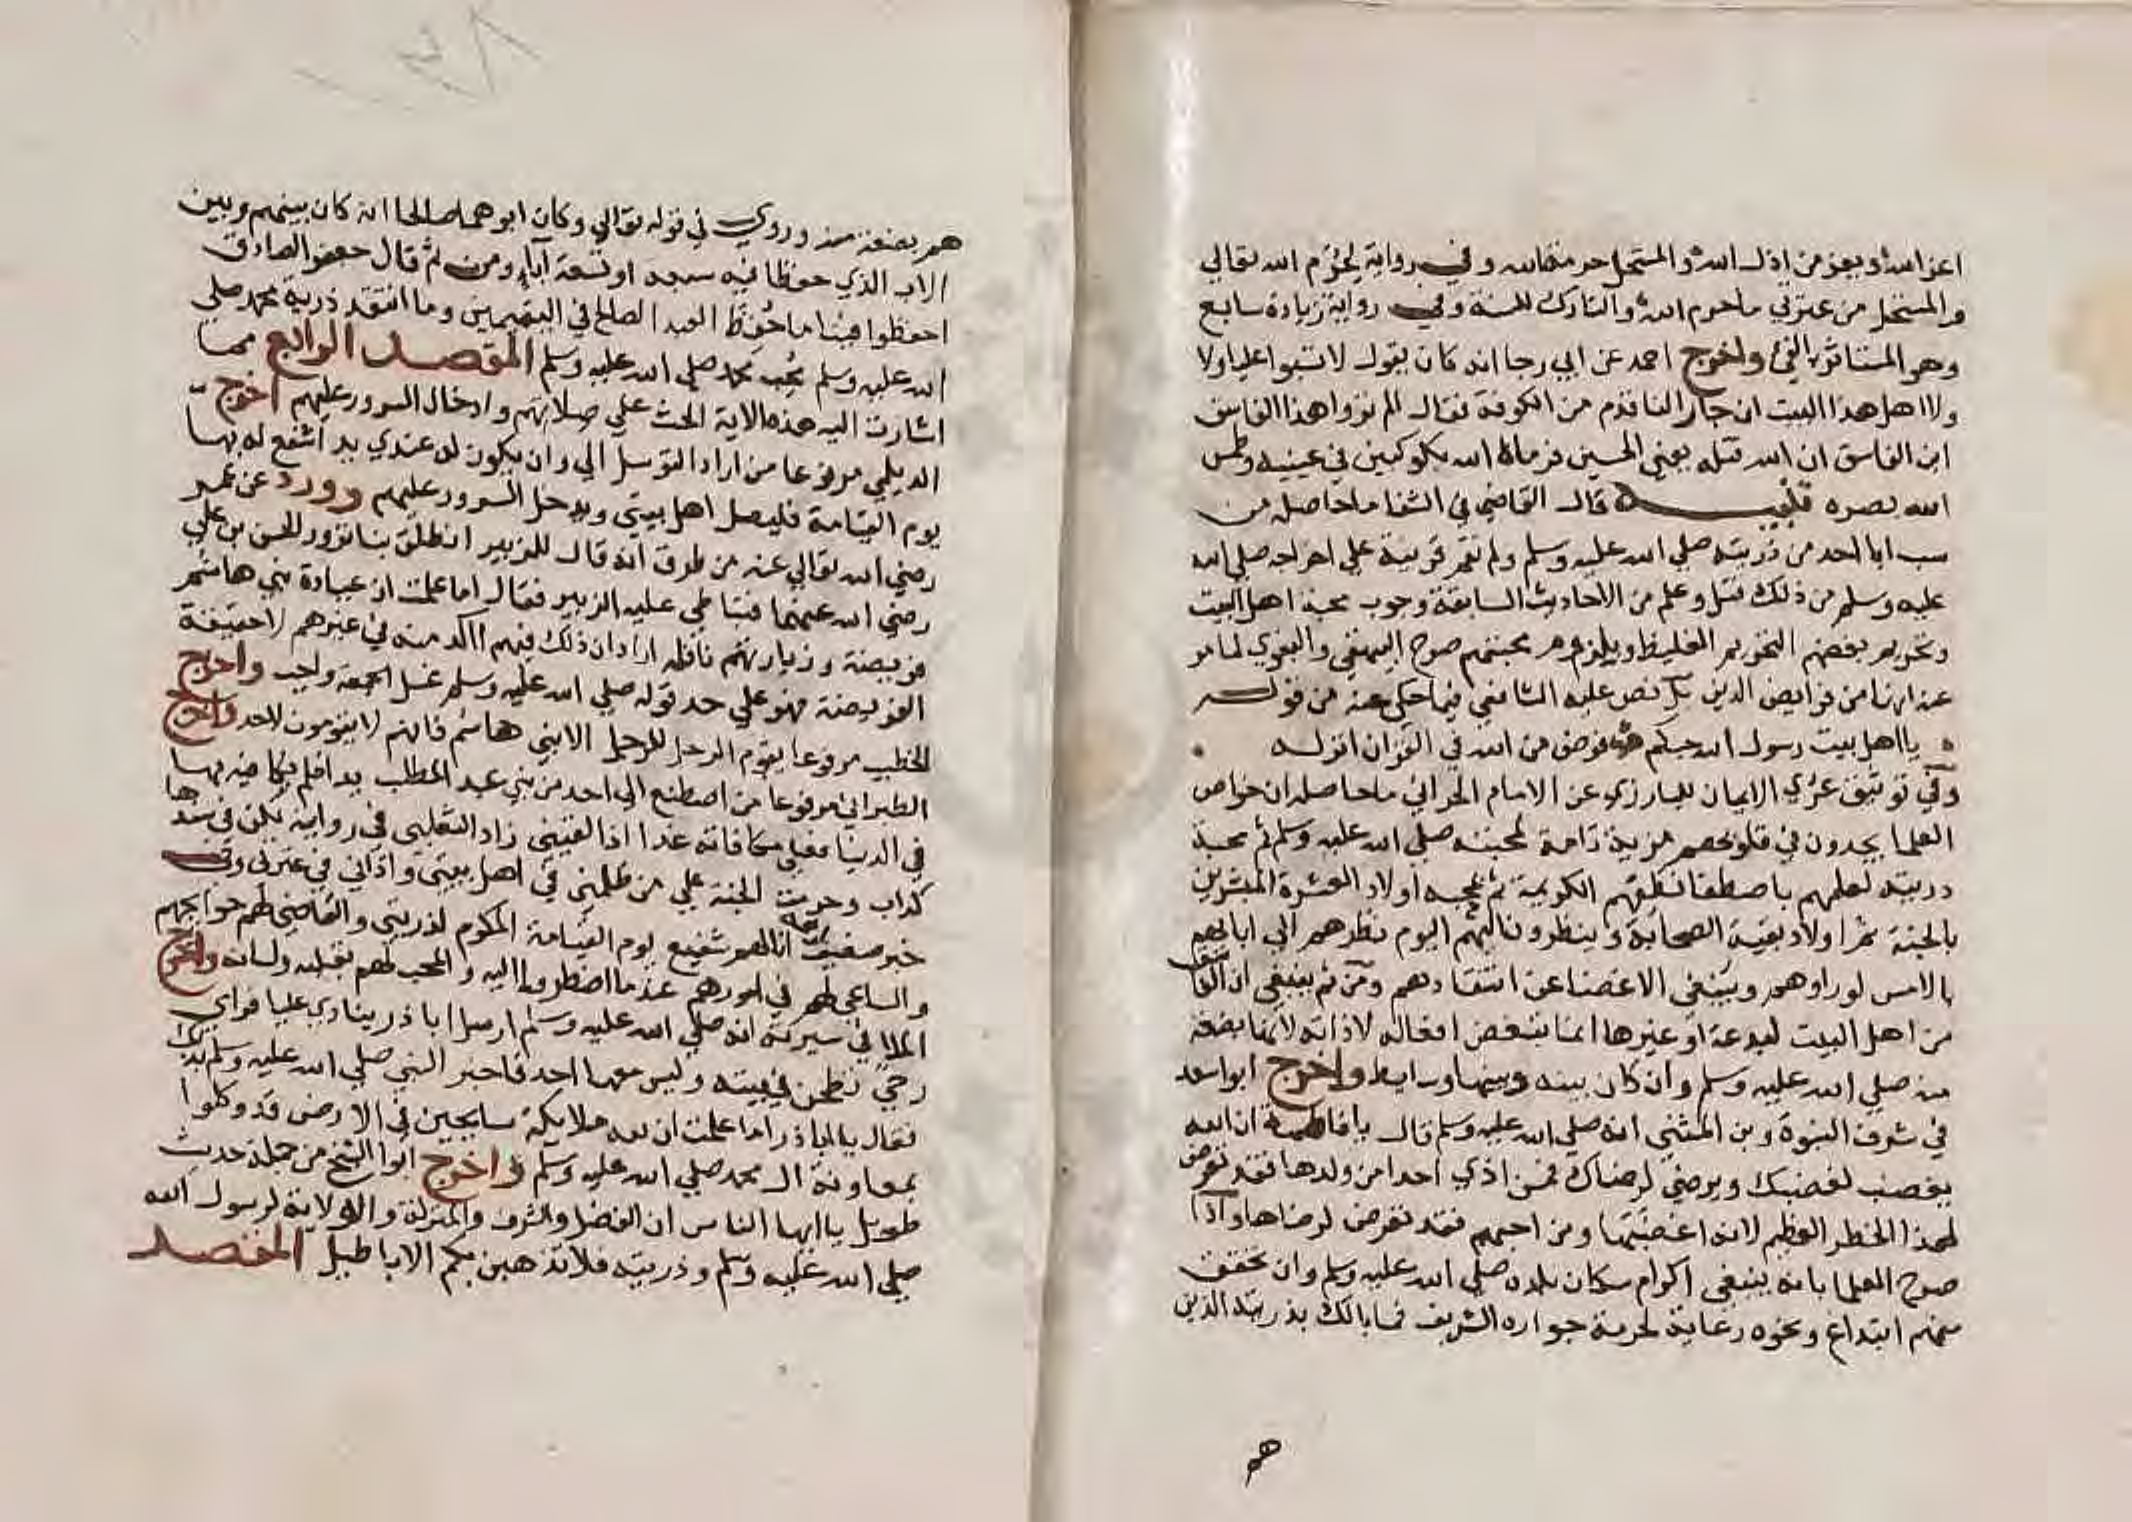 اعز الله ويعز من اذل الله والمستحل حرمة الله وفي رواية لحرم الله تعالي
والمستحل من عترتي ماحرم الله والتارك للسنة وفي رواية زيادة سابع
وهو المستاثر بالفئ واخرج احمد عن ابي رجا انه كان يقول لا تسبوا عليا ولا
ولا اهل هذا البيت ان جارا لنا قدم من الكوفة فقال الم تروا هذا الفاسق
ابن الفاسق ان الله قتله يعني الحسين فرماه الله بكوكبين في عينيه وطمس
الله بصره تنبيه قال القاضي في الشفا ما حاصله من
سب ابا احد من ذريته صلي الله عليه وسلم ولم تقم قرينة علي اخراجه صلي الله
عليه وسلم من ذلك قتل وعلم من الاحاديث السابقة وجوب محبة اهل البيت
وتحريم بغضهم التحريم الغليظ وبلزوم محبتهم صرح البيهقي والبغوي لما مر
عنه انها من فرايض الدين بل نص عليه الشافعي فيما حكي عنه من قوله
يا اهل بيت رسول الله حبكم فرض من الله في القران انزله
وفي توثيق عري الايمان للبارزي عن الامام الحرالي ما حاصله ان خواص
العلما يجدون في قلوبهم مزية تامة لمحبته صلي الله عليه وسلم ثم محبة
ذريته لعلمهم باصطفا نطفهم الكريمة ثم لمحبة اولاد العشرة المبشرين
بالجنة ثم اولاد بقية الصحابة وينظرون اليهم اليوم نظرهم الي ابائهم
بالامس لو راوهم وينبغي الاغضا عن انتقادهم ومن ثم ينبغي ان الفاسق
من اهل البيت لبدعة او غيرها انما نبغض افعاله لا ذاته لانها بضعة
منه صلي الله عليه وسلم وان كان بينه وبينها وسايط واخرج ابو اسعد
في شرف النبوة وبن المثني انه صلي الله عليه وسلم قال يا فاطمة ان الله
يغضب لغضبك ويرضي لرضاك فمن اذي احدا من ولدها فقد تعرض
لهذا الخطر العظيم لانه اغضبها ومن احبهم فقد تعرض لرضاها ولذا
صرح العلما بانه ينبغي اكرام سكان بلده صلي الله عليه وسلم وان تحقق
منهم ابتداع ونحوه رعاية لحرمة جواره الشريف فما بالك بذريته الذين
هم
هم بضعة منه وروي في قوله تعالي وكان ابوهما صالحا انه كان بينهم وبين
الاب الذي حفظا فيه سبعة او تسعة آباء ومن ثم قال جعفر الصادق
احفظوا فينا ما حفظ العبد الصالح في اليتيمين وما انتقد ذرية محمد صلي
الله عليه وسلم محب محمد صلي الله عليه وسلم المقصد الرابع مما
اشارت اليه هذه الاية الحث علي صلاتهم وادخال السرور عليهم اخرج
الديلمي مرفوعا من اراد التوسل الي وان يكون له عندي يد اشفع له بها
يوم القيامة فليصل اهل بيتي ويدخل السرور عليهم وورد عن عمر
رضي الله تعالي عنه من طرق انه قال للزبير انطلق بنا نزور الحسن بن علي
رضي الله عنهما فتباطي عليه الزبير فقال اما علمت ان عيادة بني هاشم
فريضة وزيارتهم نافلة اراد ان ذلك فيهم اكد منه في غيرهم لا حقيقة
الفريضة فهو علي حد قوله صلي الله عليه وسلم غسل الجمعة واجب واخرج
الخطيب مرفوعا يقوم الرجل للرجل الا بني هاشم فانهم لا يقومون لاحد واخرج
الطبراني مرفوعا من اصطنع الي احد من بني عبد المطلب يدا فلم يكافيه بها
في الدنيا فعلي مكافاته غدا اذا لقيني زاد الثعلبي في رواية لكن في سندها
كذاب وحرمت الجنة علي من ظلمني في اهل بيتي واذاني في عترتي وفي
خبر ضعيف اربعة انا لهم شفيع يوم القيامة المكرم لذريتي والقاضي لهم حوايجهم
والساعي لهم في امورهم عندما اضطروا اليه والمحب لهم بقلبه ولسانه واخرج
الملا في سيرته انه صلي الله عليه وسلم ارسل ابا ذر ينادي عليا فراي
رحي تطحن في بيته وليس معها احد فاخبر النبي صلي الله عليه وسلم بذلك
فقال يا ابا ذر اما علمت ان لله ملايكة سايحين في الارض قد وكلوا
بمعاونة ال محمد صلي الله عليه وسلم واخرج ابوا الشيخ من جملة حديث
طويل يا ايها الناس ان الفضل والشرف والمنزلة والولاية لرسول الله
صلي الله عليه وسلم وذريته فلا تذهبن بكم الاباطيل المقصد